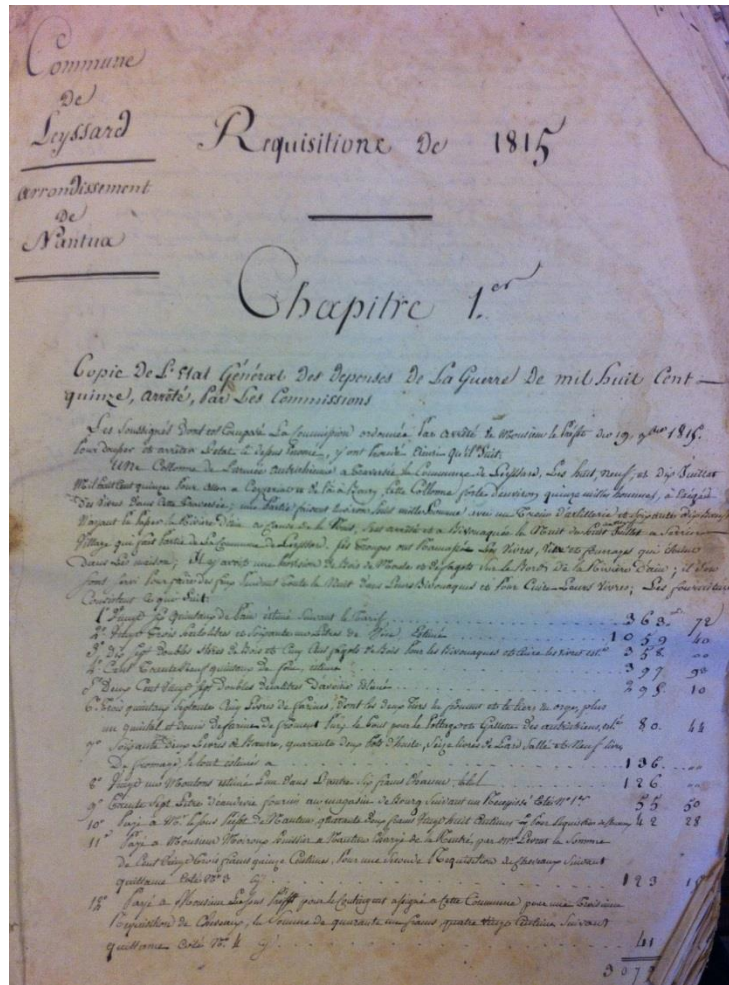 Commune
De
Leyssard
Arrondissement
De
Nantua
Requisitions De 1815
Chapitre 1.er
Copie De L'Etat Général Des depenses De La Guerre De mil huit Cent
quinze, arrêté, par Les Commissions
Les Soussignés dont est Composée La Commission ordonnée par arrêté de Monsieur le Préfet du 19. 9bre 1815.
Une Collonne de L'armée autrichienne a traversée la Commune de Leyssard, Les huit, neuf, et Dix Juillet
Mil huit Cent quinze pour aller a de là à Bourg cette Collonne forte d'environ quinze mille hommes, a Exigée
Des vivres dans cette traversée; une partie d'environ huit mille hommes avec un train d'artillerie et Soixante dix
la Rivière d'ain a Cause de la Nuit, s'est arrêté et a Bivouaquée la Nuit du huit Juillet a
Village qui fait partie de la Commune de Leyssard, Les troupes ont Les vivres, et fourages qui étaient
Dans Les maisons; Il y avoit une de Bois de et fagots sur les Bords de la Rivière d'ain; ils s'en
sont servi pour faire des feux pendant toute la Nuit dans Leurs Bivouaques et pour Cuire Leurs vivres; Les fournitures
Consistent ce qui Suit:
1° Vingt Six quintaux de pain estimé Suivant le Tarif 363 72
2° Vingt Trois hectolitres et Soixante un Litres de Vin, Estimé 1059 40
3° Dix Sept Doubles Stères de Bois et Cinq Cent fagots de Bois pour les Bivouaques et Cuire les vivres est. 358 "
4° Cent Trente Neuf quintaux de foin, estimé 397 90
5° Deux Cent Vingt Sept Doubles décalitres D'avoine Estimé 295 10
6° Trois quintaux Septante Cinq Livres de farine, dont les deux tiers de froment et le tiers de orge, plus
un quintal et demi de farine de froment le tout pour le et Galettes des autrichiens, est. 80. 44
7° Soixante Deux Livres de Beurre, quarante deux d'huile, Seize livres de Lard Sallé et Neuf livres
De fromage le tout estimés a 136 "
8° Vingt un Moutons estimé L'un Dans L'autre Six francs Chacun, total 126 "
9° Trente Sept Litres d'eau de vie fournis au magasin de Bourg Suivant un Récépissé Coté N° 1er 55 50
10° Payé a Mr. le Sous Préfet de Nantua, quarante Deux francs Vingt huit Centimes pour Requisition de 42 28
11° Payé a Monsieur huissier a Nantua Chargé de la Rentrée, par Mr. la Somme
de Cent Vingt Trois francs quinze Centimes, pour une Seconde Requisition de Chevaux Suivant
quittance Coté N° 3 123 15
12° Payé a Monsieur Le Sous Préfet pour le Contingent assigné a Cette Commune pour une Troisième
Requisition de Chevaux, la Somme de quarante un francs quatre vingt Centimes Suivant
quittance Coté N° 4 41